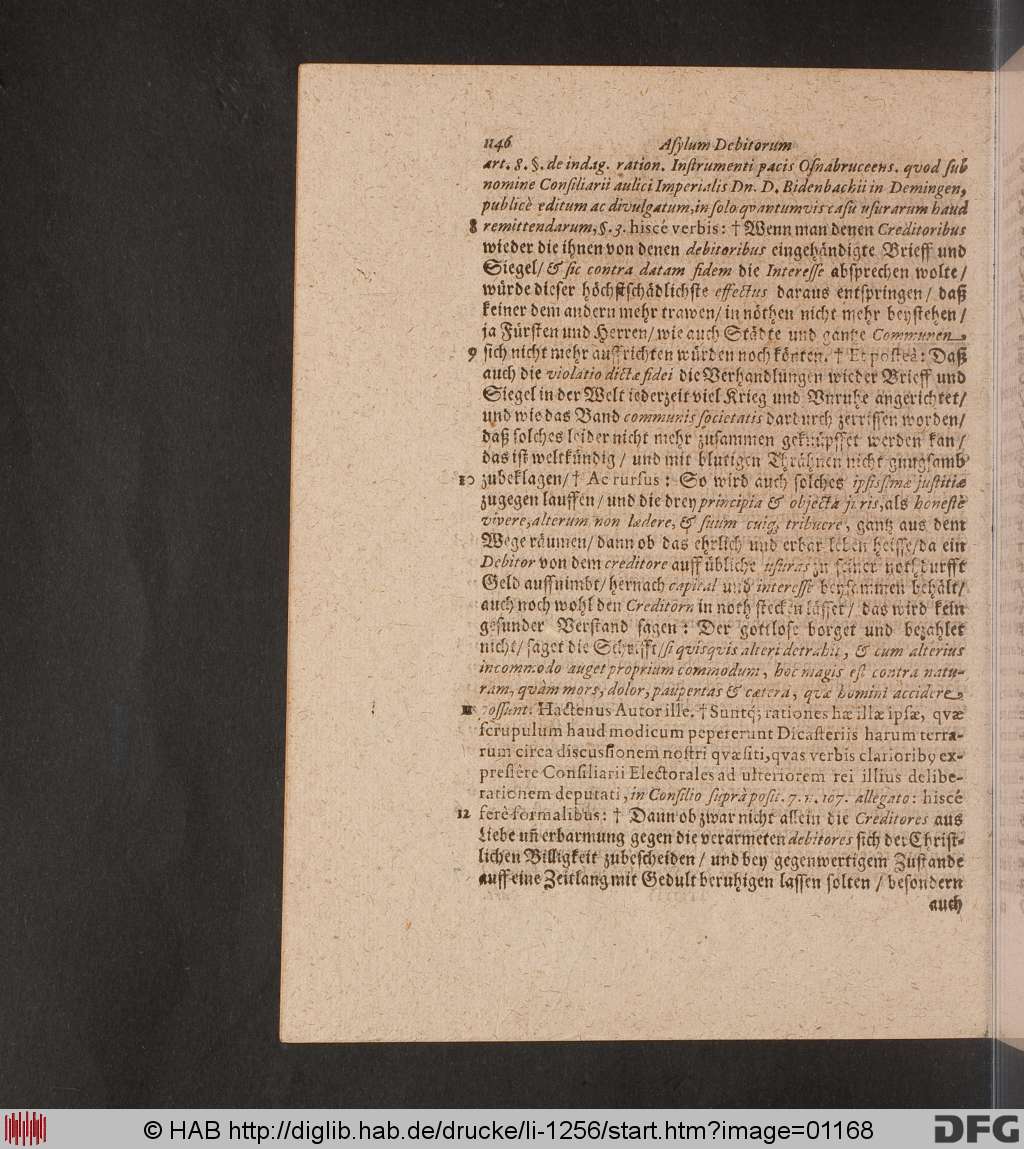 1146 Asylum Debitorum
art. 8. §. de indag. ration. Instrumenti pacis Osnabruceens. qvod sub
nomine Consiliarii aulici Imperialis Dn. D. Bidenbachii in Demingen,
publicè editum ac divulgatum, in solo qvantumvis casu usurarum haud
8 remittendarum, §. 3. hiscé verbis: † Wenn man denen Creditoribus
wieder die ihnen von denen debitoribus eingehändigte Brieff und
Siegel/ & sic contra datam fidem die Interesse absprechen wolte/
würde dieser höchstschädlichste effectus daraus entspringen/ daß
keiner dem andern mehr trawen/ in nöthen nicht mehr beystehen/
ja Fürsten und Herren/ wie auch Städte und gantze Communen
9 sich nicht mehr auffrichten würden noch könten. † Et posteà: Daß
auch die violatio dictæ fidei die Verhandlungen wieder Brieff und
Siegel in der Welt iederzeit viel Krieg und Vnruhe angerichtet/
und wie das Band communis societatis dardurch zerrissen worden/
daß solches leider nicht mehr zusammen geknüpffet werden kan/
das ist weltkündig/ und mit blutigen Thränen nicht gnugsamb
10 zubeklagen/ † Ac rursus: So wird auch solches ipsissimæ justitiæ
zugegen lauffen/ und die drey principia & objecta juris, als honestè
vivere, alterum non lædere, & suum cuiq; tribuere, gantz aus dem
Wege räumen/ dann ob das ehrlich und erbar leben heisse/ da ein
Debitor von dem creditore auff übliche usuras zu seiner nothdurfft
Geld auffnimbt/ hernach capital und interesse beysammen behält/
auch noch wohl den Creditorn in noth stecken lässet/ das wird kein
gesunder Verstand sagen: Der gottlose borget und bezahlet
nicht/ saget die Schrifft/ si qvisqvis alteri detrahit, & cum alterius
incommodo auget proprium commodum, hoc magis est contra natu-
ram, qvàm mors, dolor, paupertas & cætera, qvæ homini accidere
11 possunt. Hactenus Autor ille. † Suntq; rationes hæ illæ ipsæ, qvæ
scrupulum haud modicum pepererunt Dicasteriis harum terra-
rum circa discussionem nostri qvæsiti, qvas verbis clarioribꝰ ex-
presière Consiliarii Electorales ad ulteriorem rei illius delibe-
rationem deputati, in Consilio suprà posit. 7. n. 107. allegato: hiscé
12 ferè formalibus: † Dann ob zwar nicht allein die Creditores aus
Liebe uñ erbarmung gegen die verarmeten debitores sich der Christ-
lichen Billigkeit zubescheiden/ und bey gegenwertigem Zustande
auff eine Zeitlang mit Gedult beruhigen lassen solten/ besondern
auch
© HAB http://diglib.hab.de/drucke/li-1256/start.htm?image=01168
DFG